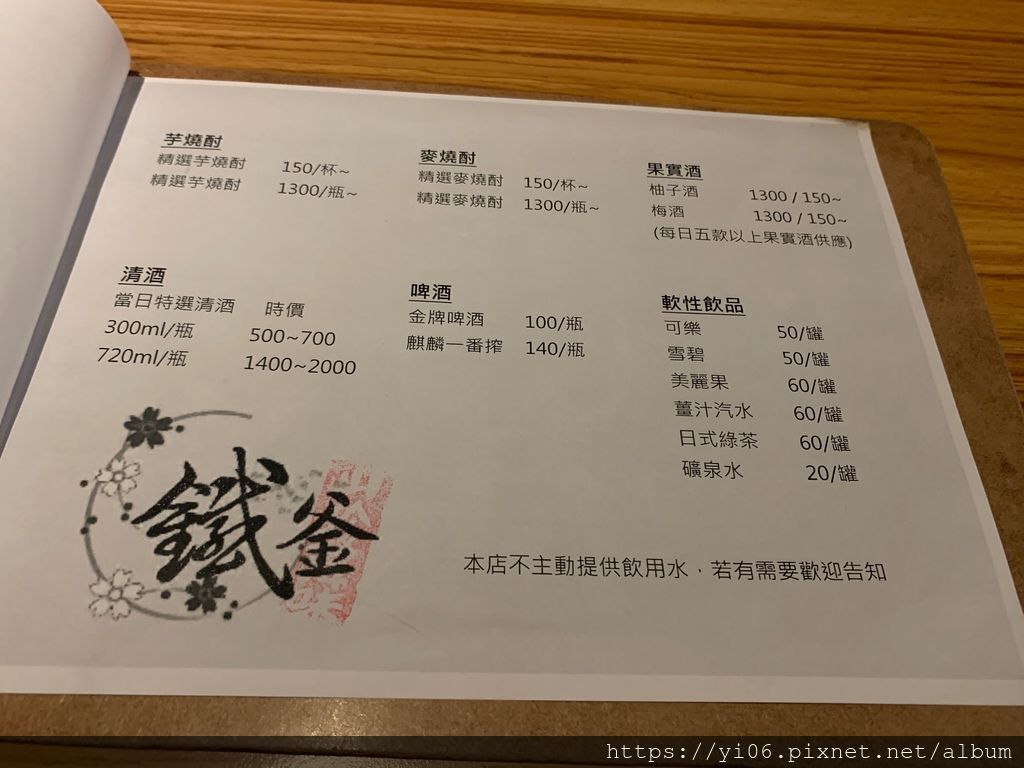 芋燒酎
精選芋燒酎 150/杯~
精選芋燒酎 1300/瓶~
麥燒酎
精選麥燒酎 150/杯~
精選麥燒酎 1300/瓶~
果實酒
柚子酒 1300 / 150~
梅酒 1300 / 150~
(每日五款以上果實酒供應)
清酒
當日特選清酒 時價
300ml/瓶 500~700
720ml/瓶 1400~2000
啤酒
金牌啤酒 100/瓶
麒麟一番搾 140/瓶
軟性飲品
可樂 50/罐
雪碧 50/罐
美麗果 60/罐
薑汁汽水 60/罐
日式綠茶 60/罐
礦泉水 20/罐
鐵釜
本店不主動提供飲用水，若有需要歡迎告知
https://yi06.pixnet.net/album